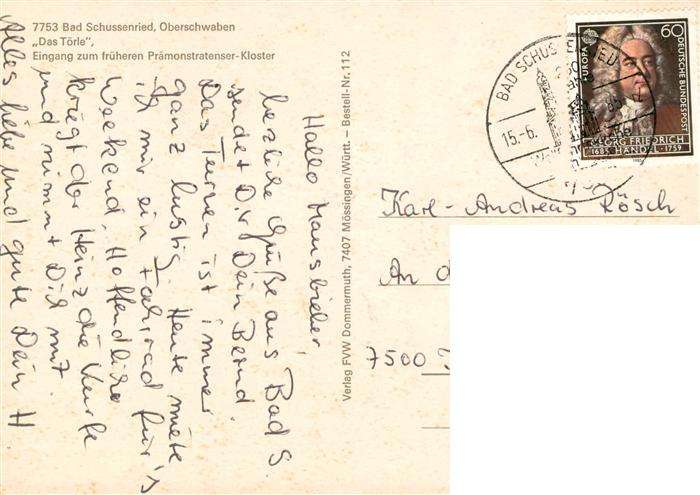 7753 Bad Schussenried, Oberschwaben
„Das Törle",
Eingang zum früheren Prämonstratenser-Kloster
Hallo Hausbieber,
herzliche Grüße aus Bad S.
sendet Dir Dein Bernd.
Das Turnen ist immer
ganz lustig. Heute miete
ich mir ein Fahrrad für's
Weekend. Hoffentlich
kriegt der Heinz die Kurve
und nimmt Dich mit.
Alles liebe und gute Dein H
Verlag FVW Dommermuth, 7407 Mössingen/Württ. – Bestell-Nr. 112
BAD SCHUSSENRIED
15.-6.
EUROPA
60
DEUTSCHE BUNDESPOST
GEORG FRIEDRICH
1685 HÄNDEL 1759
Karl-Andreas Rösch
An d
7500